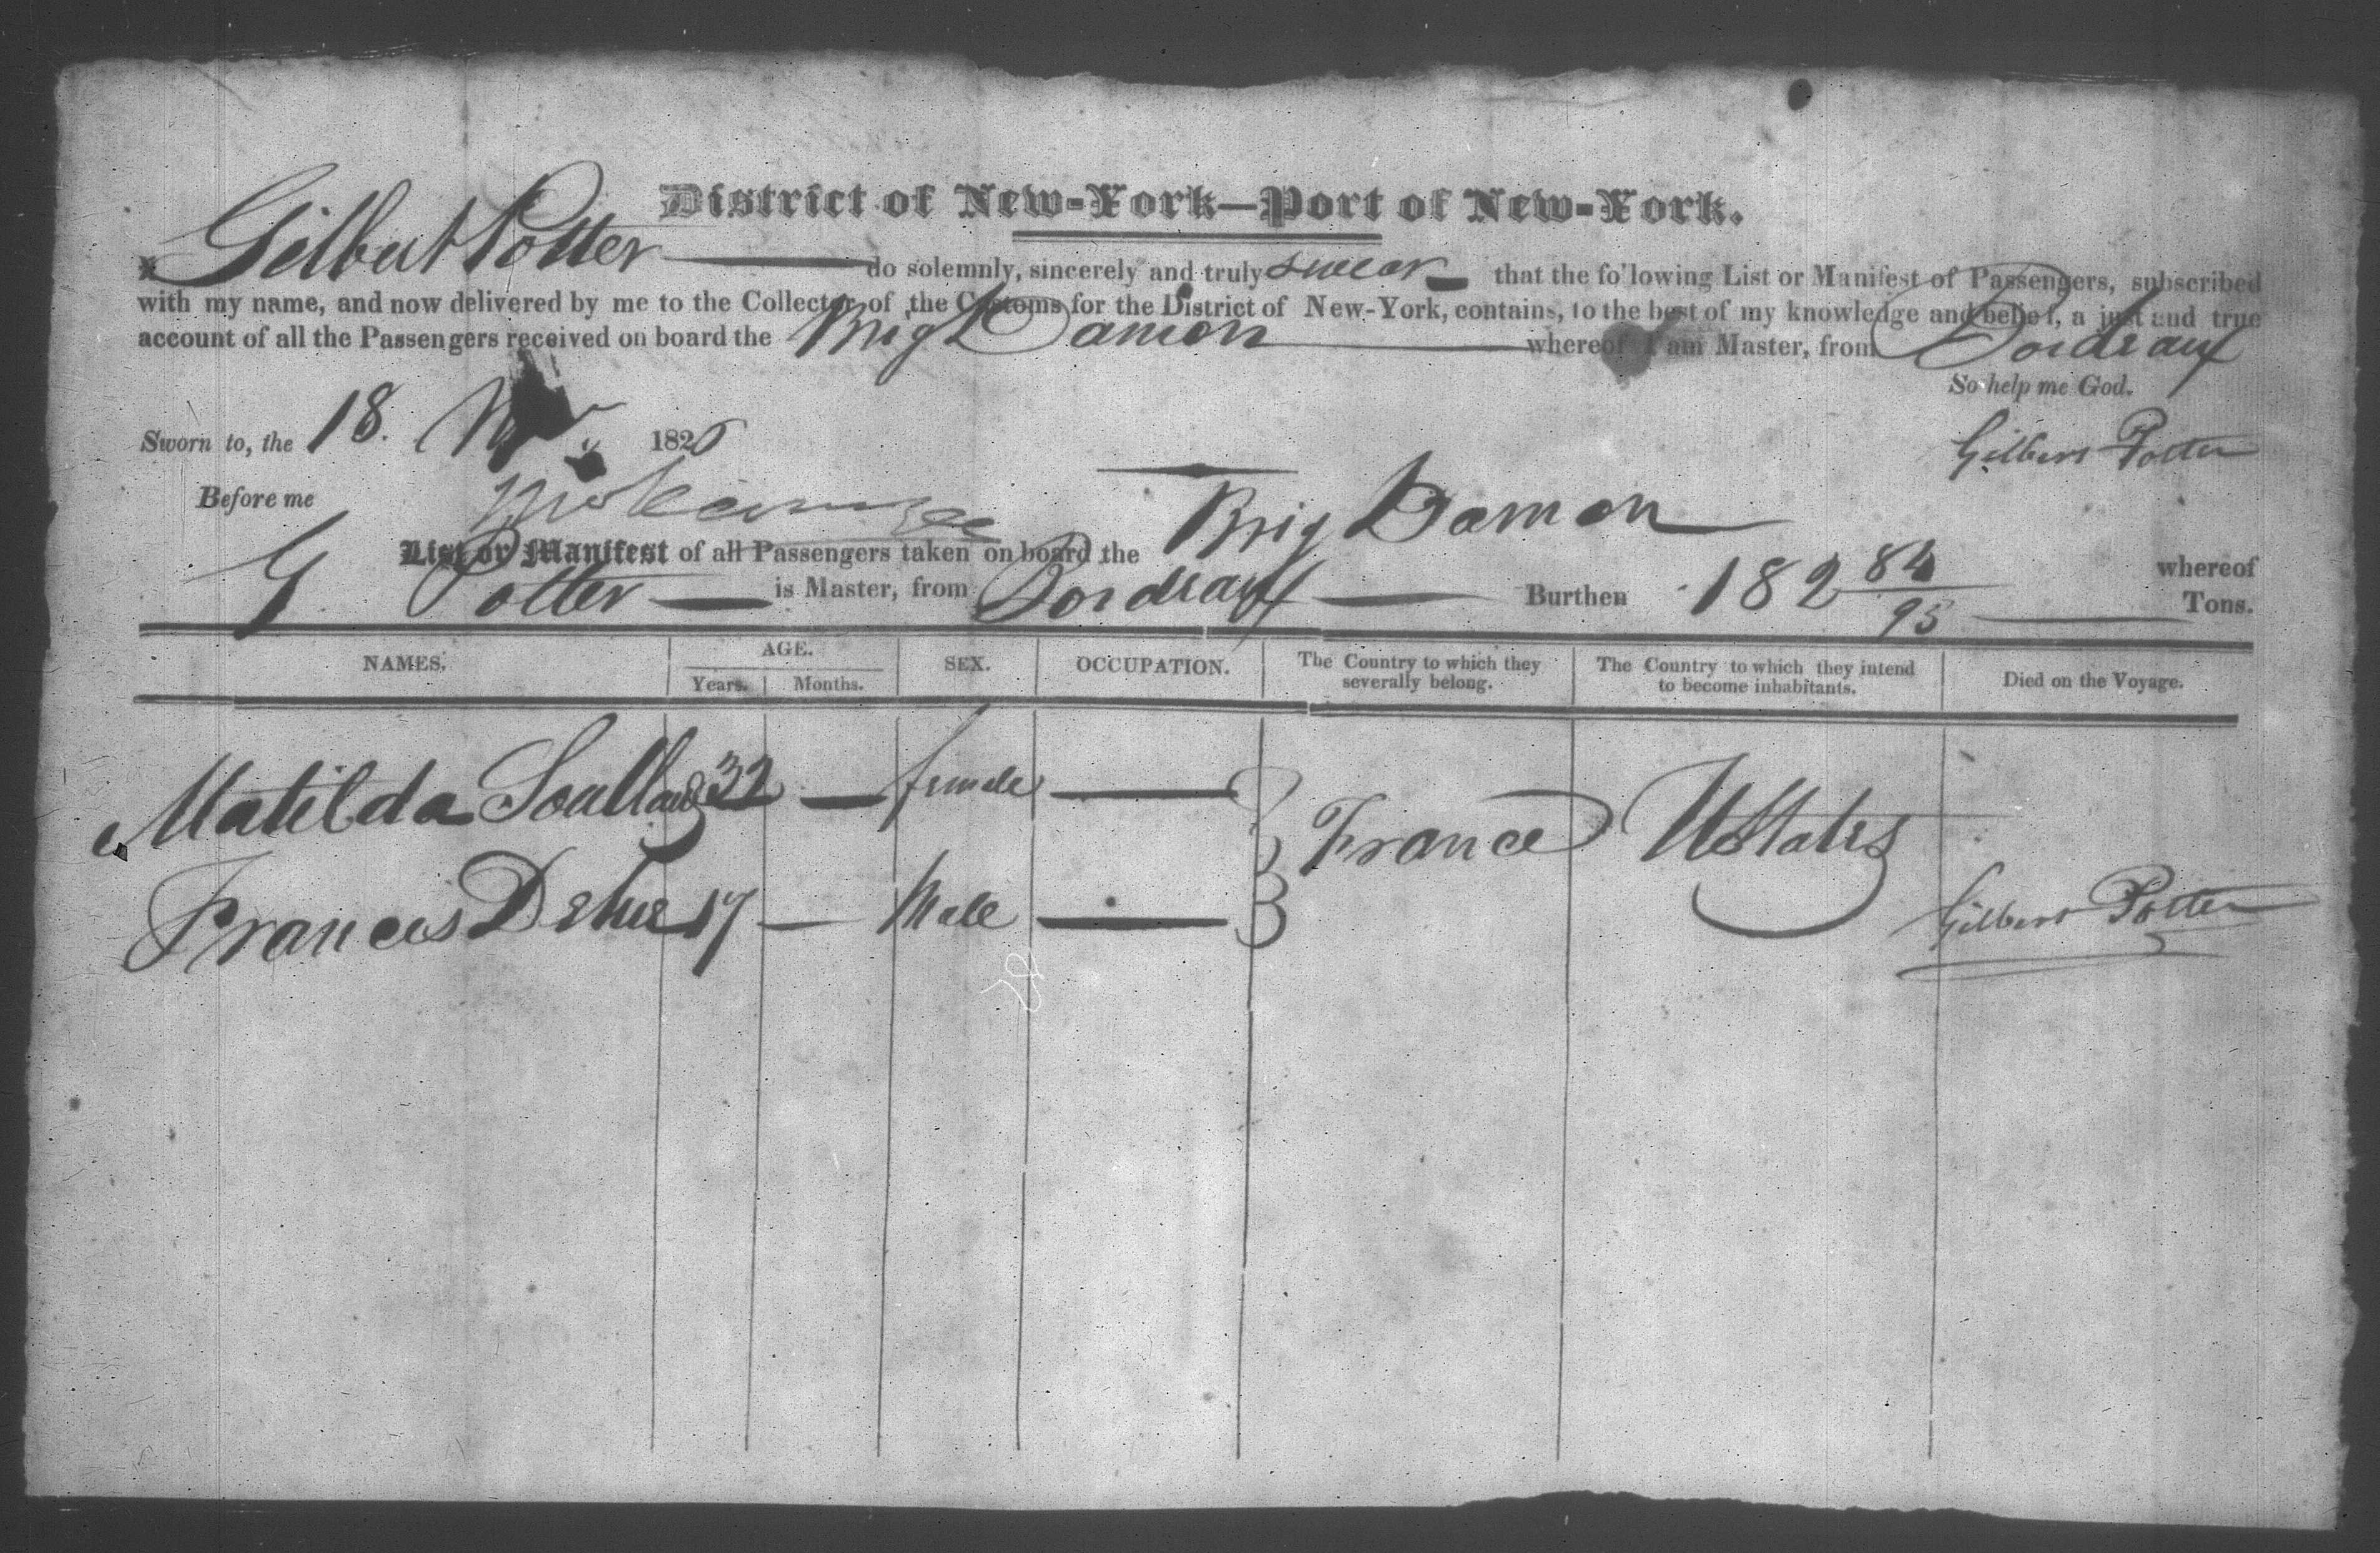 District of New-York—Port of New-York.
I, Gilbert Potter do solemnly, sincerely and truly swear that the following List or Manifest of Passengers, subscribed
with my name, and now delivered by me to the Collector of the Customs for the District of New-York, contains, to the best of my knowledge and belief, a just and true
account of all the Passengers received on board the Brig Damon whereof I am Master, from Bordeaux
So help me God.
Sworn to, the 18. 1826
Gilbert Potter
Before me
List or Manifest of all Passengers taken on board the Brig Damon whereof
G Potter is Master, from Bordeaux Burthen 182 84/95 Tons.
NAMES. AGE. SEX. OCCUPATION. The Country to which they severally belong. The Country to which they intend to become inhabitants. Died on the Voyage.
Years. Months.
Matilda 32 — female —
France UStates
Francis 17 — Male —
Gilbert Potter